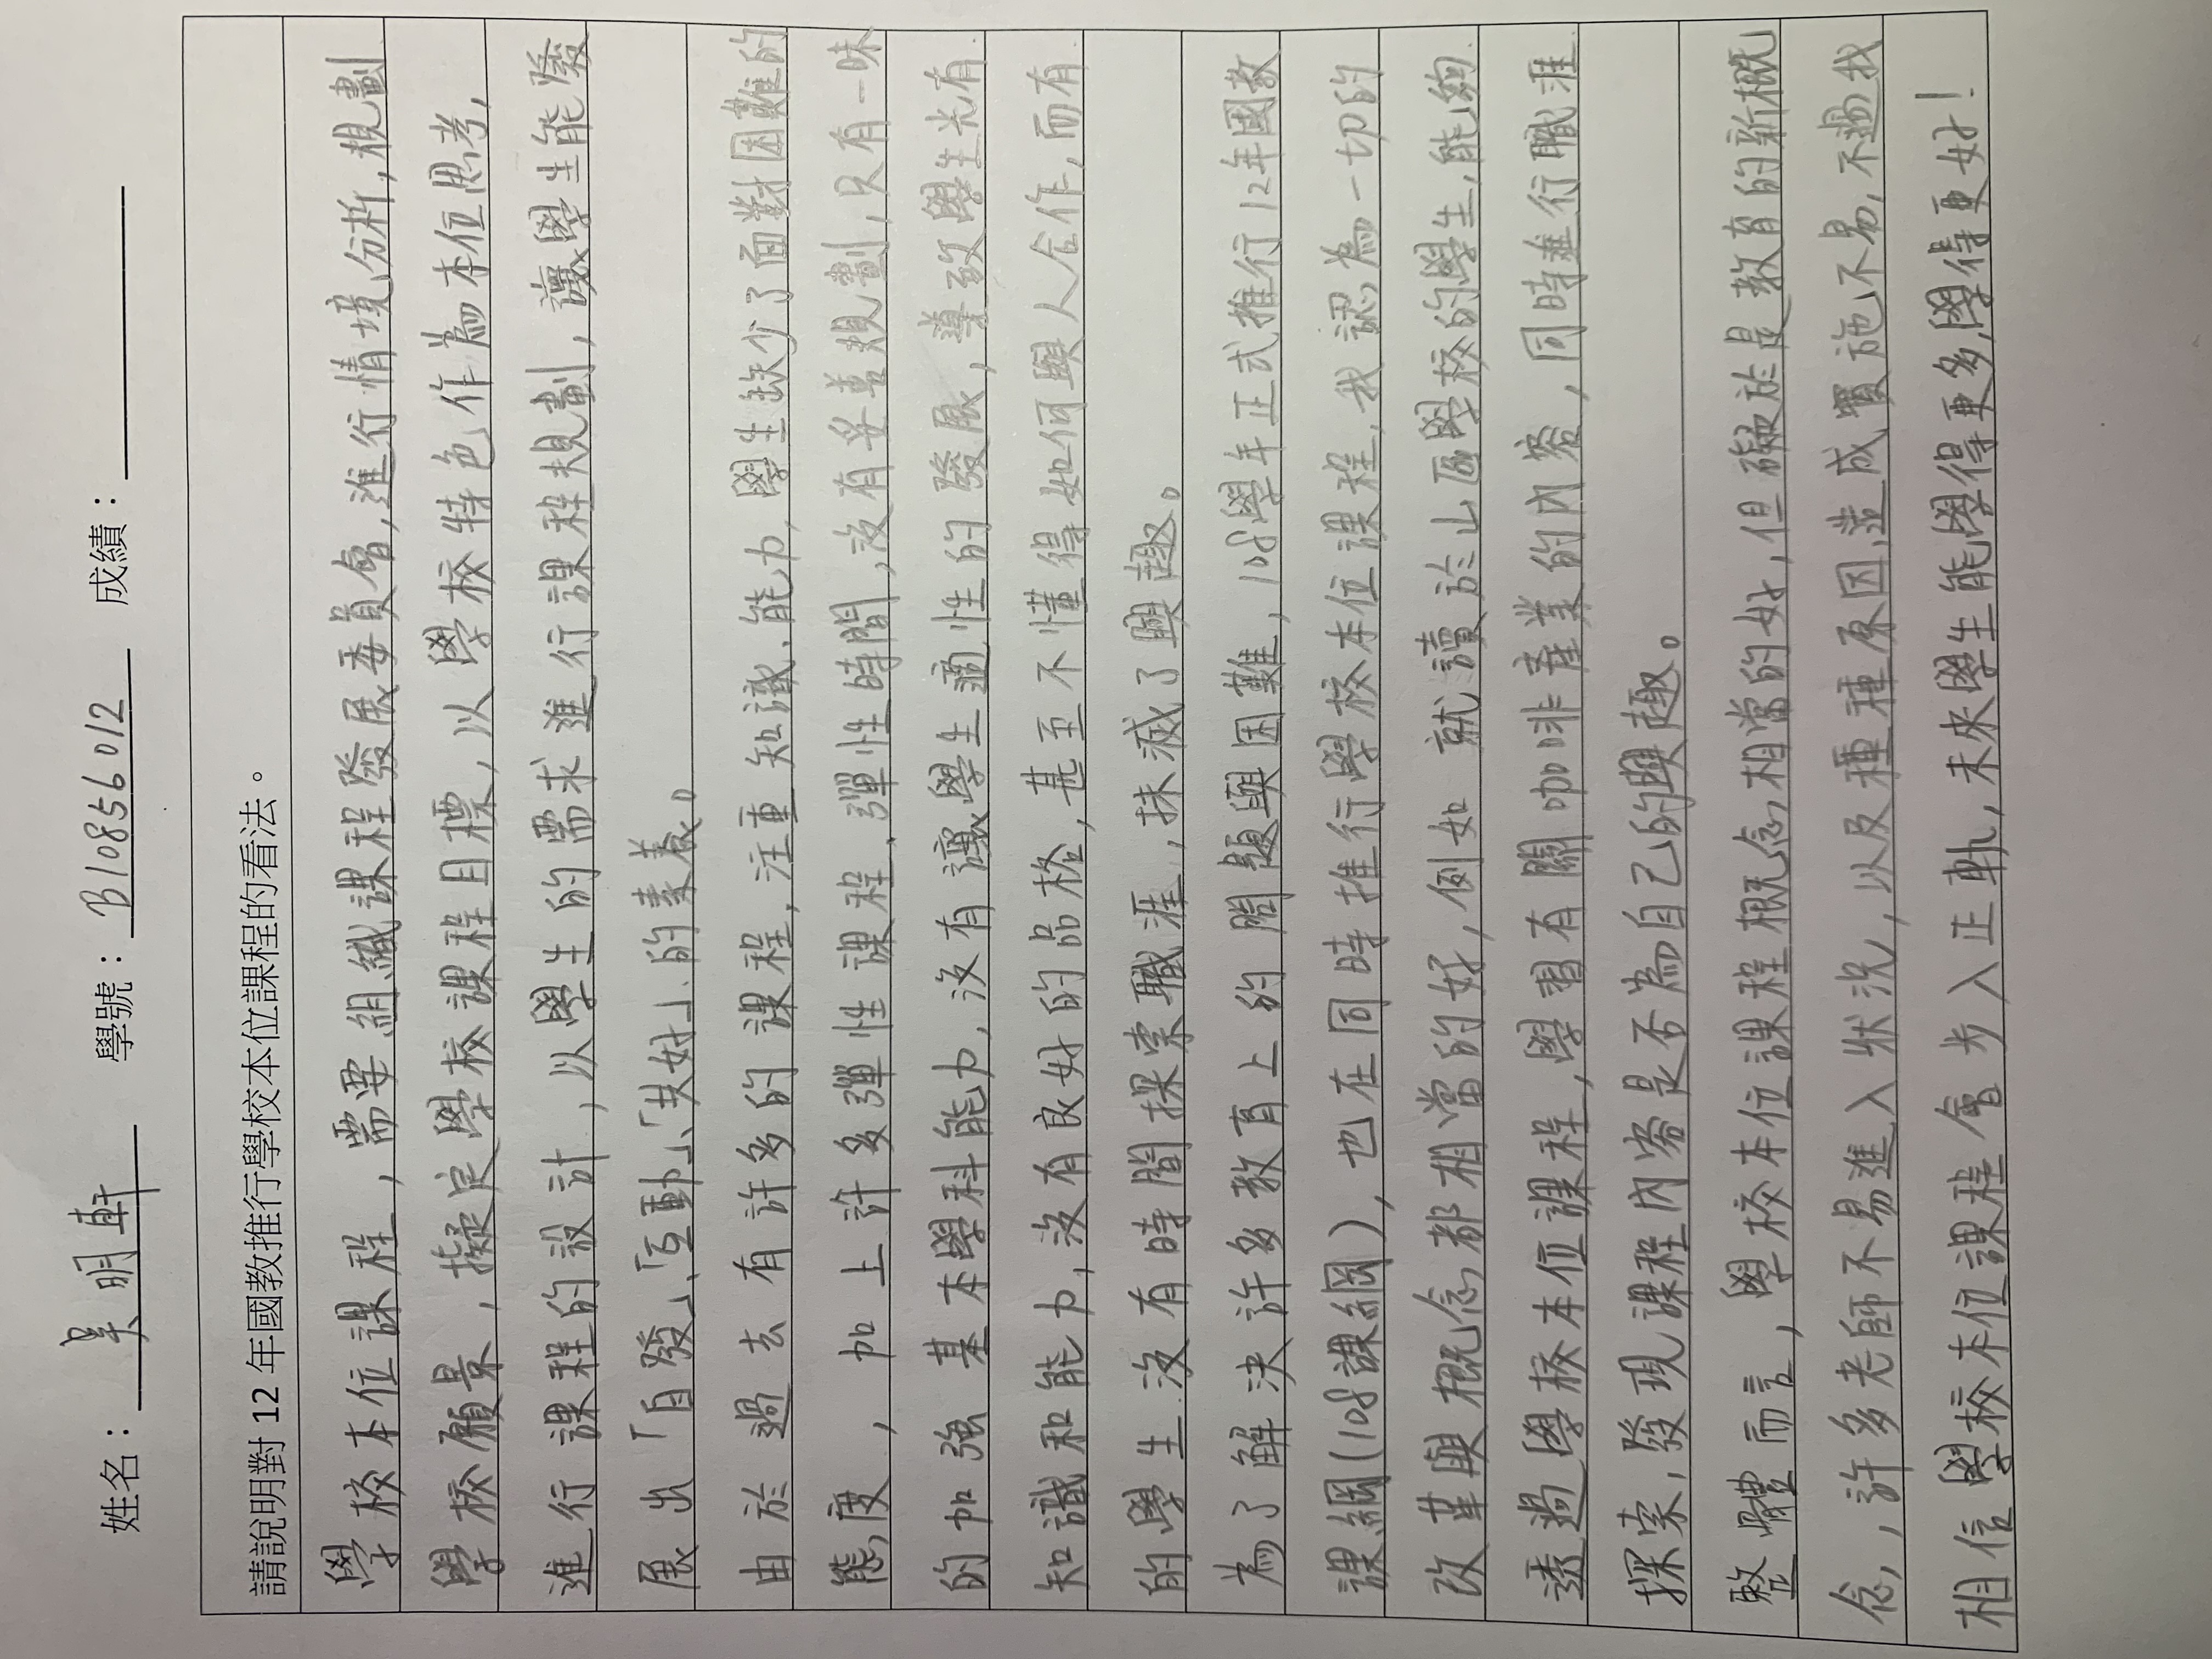 姓名：吳明軒 學號：B10856012 成績：
請說明對 12 年國教推行學校本位課程的看法。
學校本位課程，需要組織課程發展委員會,進行情境分析,規劃
學校願景,擬定學校課程目標,以學校特色作為本位思考,
進行課程的設計,以學生的需求進行課程規劃,讓學生能發
展出「自發」、「互動」、「共好」的素養。
由於過去有許多的課程,注重知識、能力,學生缺少了面對困難的
態度,加上許多彈性課程、彈性時間,沒有妥善規劃,只有一味
的加強基本學科能力,沒有讓學生適性的發展,導致學生光有
知識和能力,沒有良好的品格,甚至不懂得如何與人合作,而有
的學生沒有時間探索職涯,抹滅了興趣。
為了解決許多教育上的問題與困難,108學年正式推行12年國教
課綱(108課綱),也在同時推行學校本位課程,我認為一切的
改革與概念都相當的好,例如就讀於山區學校的學生,能夠
透過學校本位課程,學習有關咖啡產業的內容,同時進行職涯
探索,發現課程內容是否為自己的興趣。
整體而言,學校本位課程概念相當的好,但礙於是教育的新概
念,,許多老師不易進入狀況,以及種種原因,造成實施不易,不過我
相信學校本位課程會步入正軌,未來學生能學得更多,學得更好!